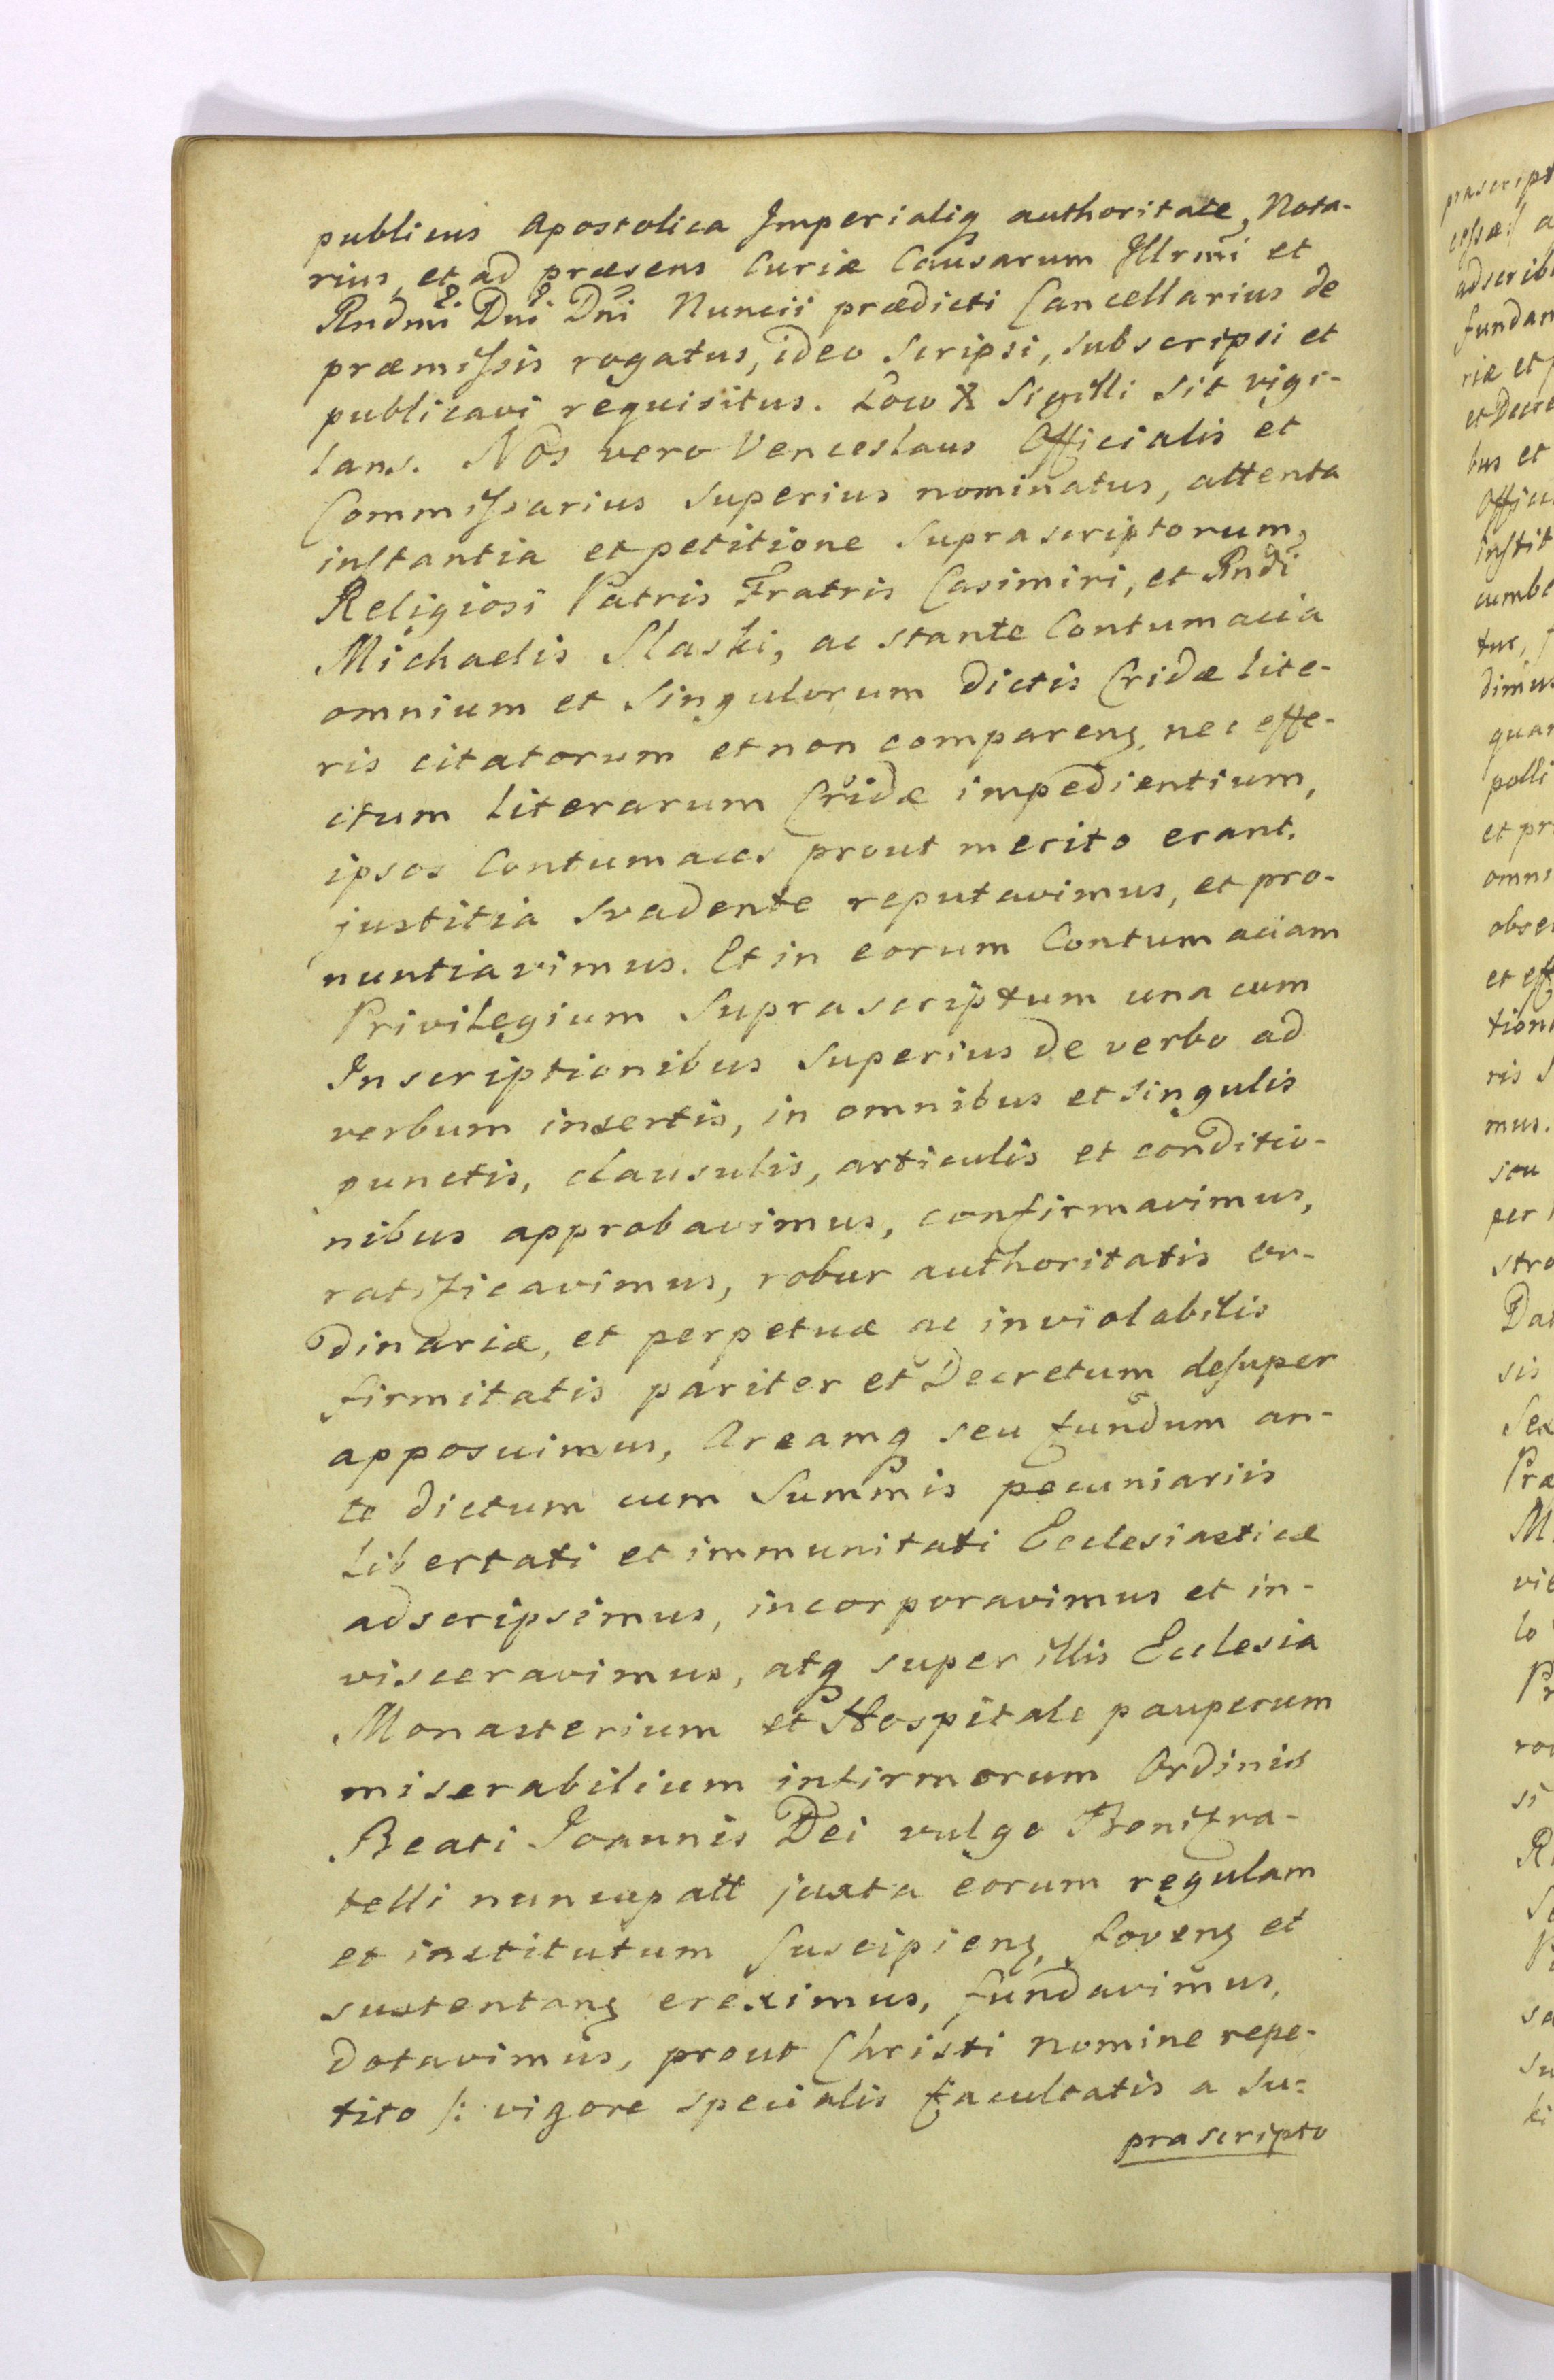 publicus Apostolica Imperialiq authoritate, Nota-
rius, et ad præsens Curiæ Causarum Illrmi et
Rndmi Dni Dni Nuncii prædicti Cancellarius de
præmissis rogatus, ideo scripsi, subscripsi et
publicavi requisitus. Loco Sigilli sit vigi-
lans. Nos vero Venceslaus Officialis et
Commissarius superius nominatus, attenta
instantia et petitione suprascriptorum,
Religiosi Patris Fratris Casimiri, et Rndi
Michaelis Slaski, ac stante Contumacia
omnium et singulorum dictis Cridæ lite-
ris citatorum et non compareng, nec effe-
ctum literarum Cridæ impedientium,
ipsos Contumaces prout merito erant,
justitia svadente reputavimus, et pro-
nuntiavimus. Et in eorum Contumaciam
Privilegium Suprascriptum una cum
Inscriptionibus superius de verbo ad
verbum insertis, in omnibus et singulis
punctis, clausulis, articulis et conditio-
nibus approbavimus, confirmavimus,
ratificavimus, robur authoritatis or-
dinariæ, et perpetuæ ac inviolabilis
firmitatis pariter et Decretum desuper
apposuimus, Areamq seu fundum an-
te dictum cum Summis pecuniariis
Libertati et immunitati Ecclesiasticæ
adscripsimus, incorporavimus et in-
visceravimus, atq super illis Ecclesia
Monasterium et Hospitale pauperum
miserabilium infirmorum Ordinis
Beati Joannis Dei vulgo Bonifra-
telli nuncupatt juxta eorum regulam
et institutum suscipieng, foveng et
sustentang ereximus, fundavimus,
dotavimus, prout Christi nomine repe-
tito /: vigore specialis facultatis a su-
prascripto